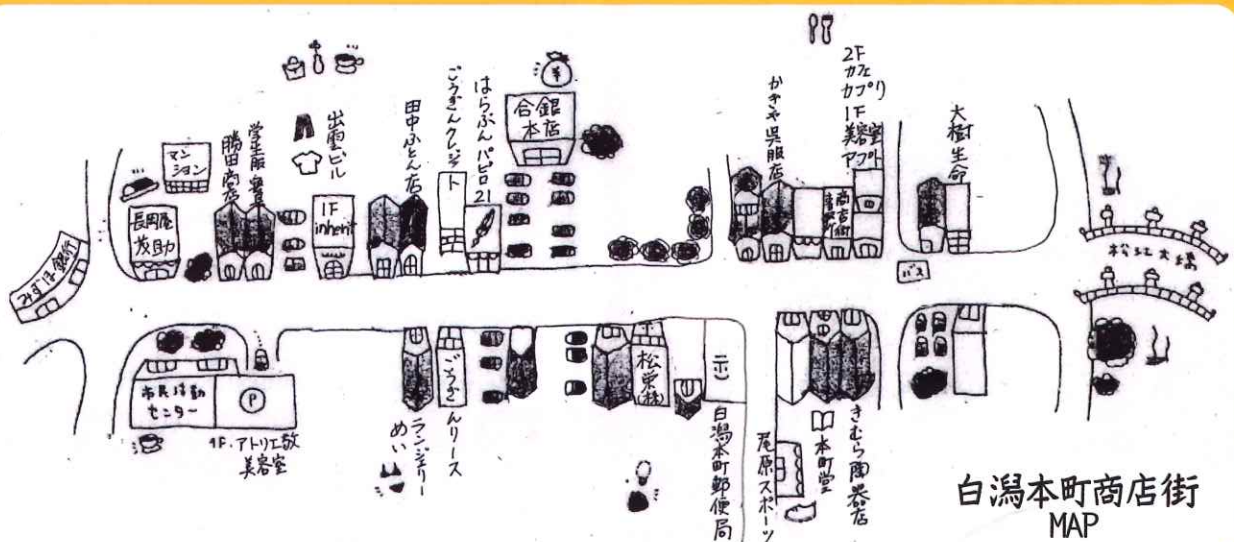 みずほ銀行
マンション
長岡屋
茂助
勝田商店
出雲ビル
1F
inherit
田中ふとん店
ごうぎんクレジット
はらぶんパピロ21
¥
合銀
本店
かぎや呉服店
2F
カフェ
カプリ
1F
美容室
大樹生命
バス
松江大橋
市民活動
センター
P
1F.アトリエ敬
美容室
ランジェリー
めい
ごうぎんリース
松栄(株)
白潟本町郵便局
尾原スポーツ
本町堂
きむら陶器店
白潟本町商店街
MAP